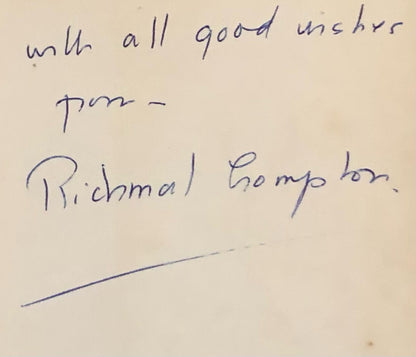 with all good wishes
from -
Richmal Crompton.